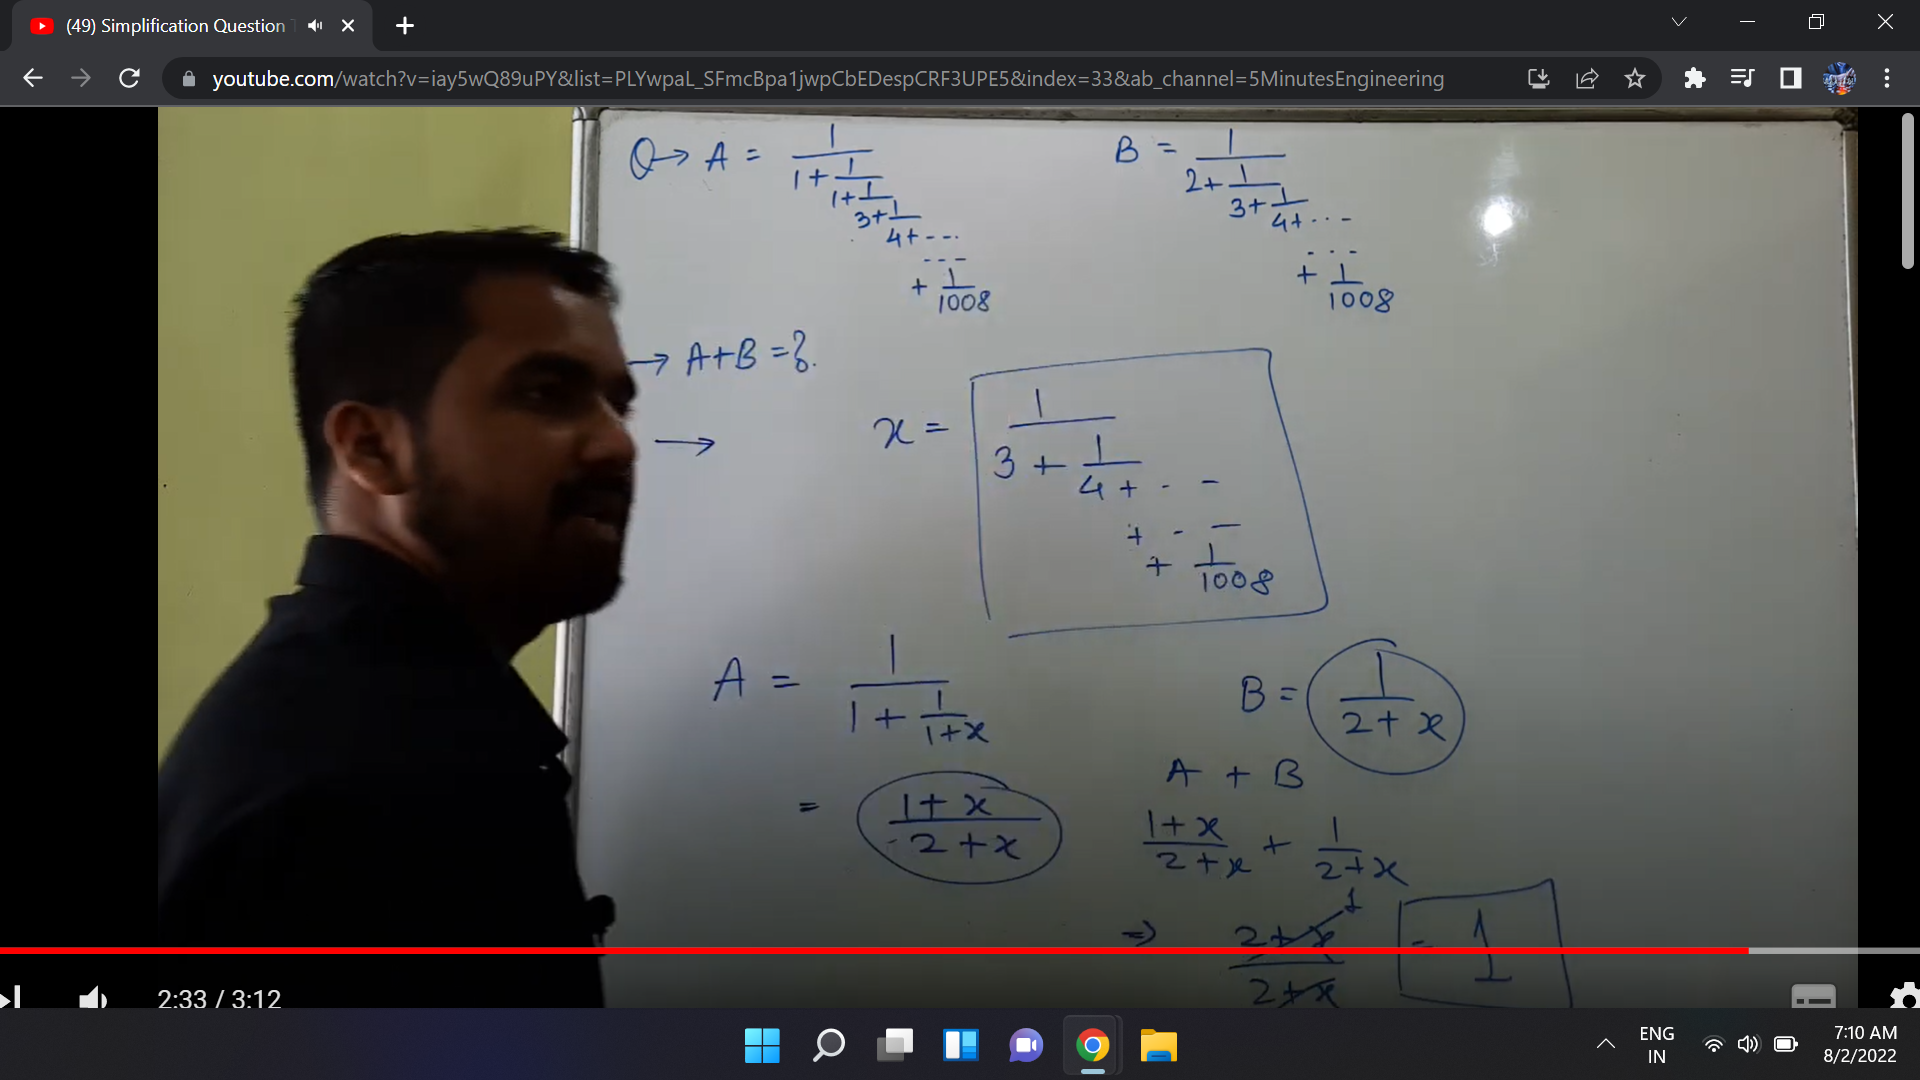 (49) Simplification Question
youtube.com/watch?v=iay5wQ89uPY&list=PLYwpaL_SFmcBpa1jwpCbEDespCRF3UPE5&index=33&ab_channel=5MinutesEngineering
Q→ A = 1/(1+1/(1+1/(3+1/(4+---
---
+ 1/1008
B = 1/(2+1/(3+1/(4+---
---
+ 1/1008
→ A+B = ?.
→ x = 1/(3 + 1/(4 + - -
+ - -
+ 1/1008
A = 1/(1 + 1/(1+x))
= (1+x)/(2+x)
B = 1/(2+x)
A + B
(1+x)/(2+x) + 1/(2+x)
⇒ (2+x)/(2+x) 1 = 1
2:33 / 3:12
ENG
IN
7:10 AM
8/2/2022